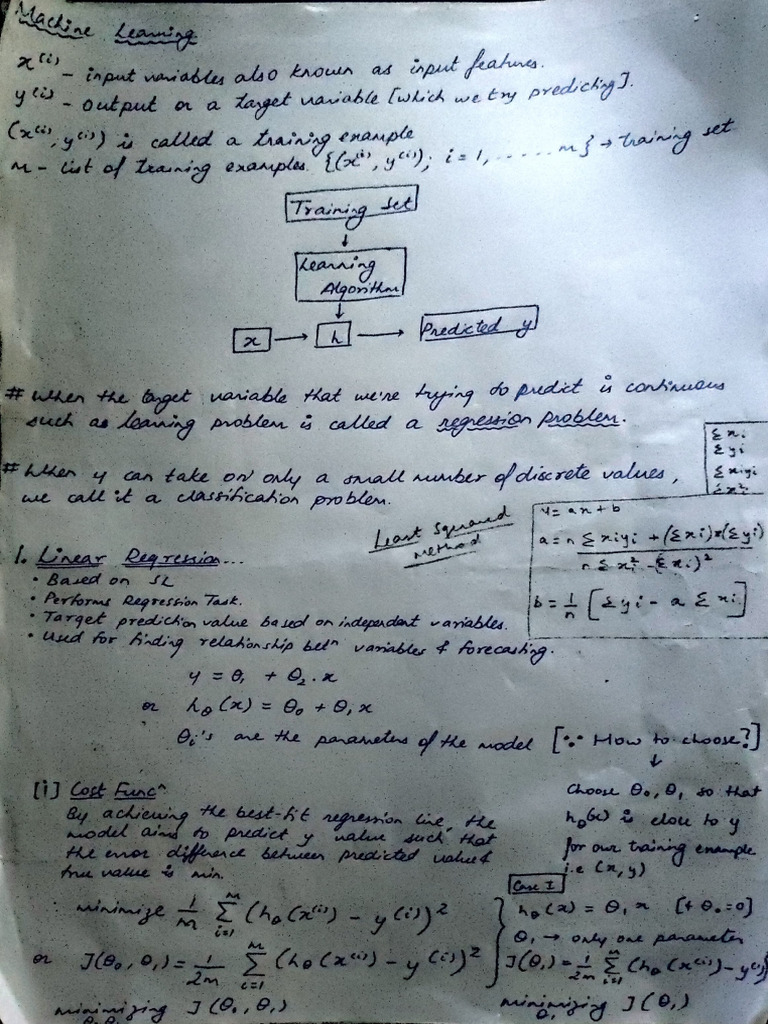 Machine Learning
x^(i) - input variables also known as input features.
y^(i) - output or a target variable [which we try predicting].
(x^(i), y^(i)) is called a training example
m - list of training examples. {(x^(i), y^(i)); i = 1, ...... m} → training set
Training Set
↓
Learning
Algorithm
↓
x → h → Predicted y
# When the target variable that we're trying to predict is continuous
such as learning problem is called a regression problem.
Σxi
Σyi
Σxiyi
Σxi²
# When y can take on only a small number of discrete values,
we call it a classification problem.
Least Squared
method
y = ax + b
a = n Σxiyi + (Σxi)*(Σyi) / n Σxi² - (Σxi)²
b = 1/n [Σyi - a Σxi]
1. Linear Regression...
• Based on SL
• Performs Regression Task.
• Target prediction value based on independent variables.
• Used for finding relationship betⁿ variables & forecasting.
y = θ₁ + θ₂.x
or hθ(x) = θ₀ + θ₁x
θi's are the parameters of the model [∵ How to choose?]
↓
Choose θ₀, θ₁ so that
hθ(x) is close to y
for our training example
i.e (x, y)
[i] Cost Funcⁿ
By achieving the best-fit regression line, the
model aims to predict y value such that
the error difference between predicted value &
true value is min.
minimize 1/m Σ_{i=1}^{m} (hθ(x^(i)) - y^(i))²
or J(θ₀, θ₁) = 1/2m Σ_{i=1}^{m} (hθ(x^(i)) - y^(i))²
minimizing J(θ₀, θ₁)
θ₀ θ₁
Case I
hθ(x) = θ₁x [θ₀=0]
θ₁ → only one parameter
J(θ₁) = 1/2m Σ_{i=1}^{m} (hθ(x^(i)) - y^(i))
minimizing J(θ₁)
θ₁